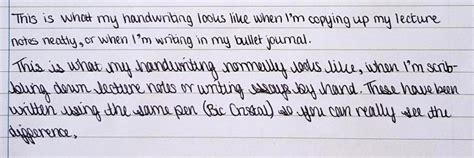 This is what my handwriting looks like when I'm copying up my lecture
notes neatly, or when I'm writing in my bullet journal.
This is what my handwriting normally looks like, when I'm scrib-
bling down lecture notes or writing essays by hand. These have been
written using the same pen (Bic Cristal) so you can really see the
difference.